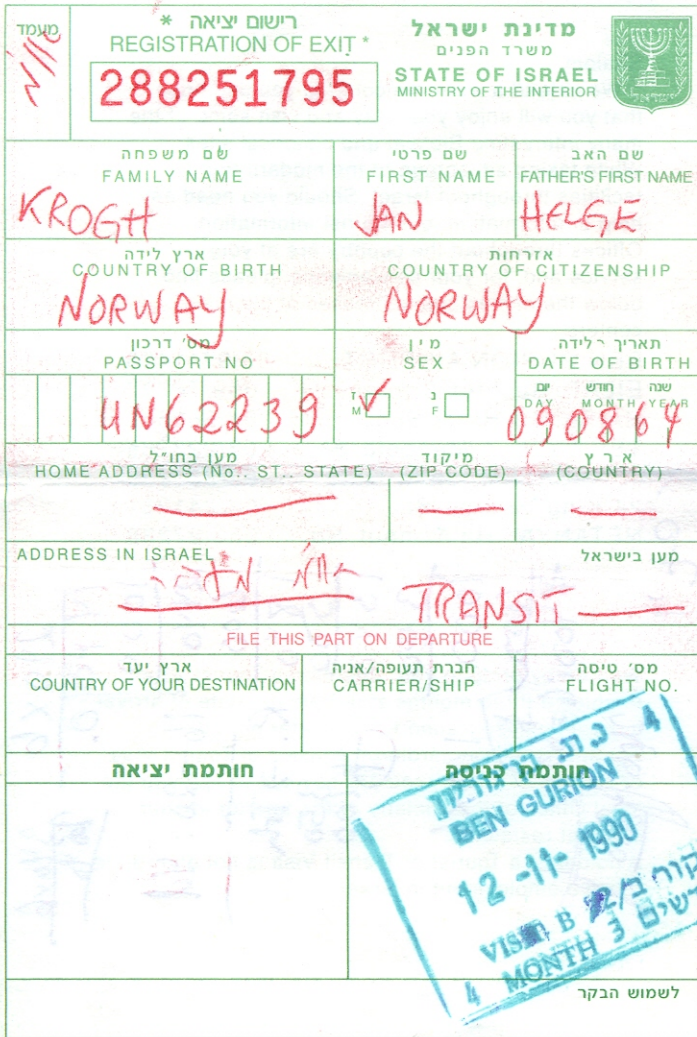 מעמד
* רישום יציאה
REGISTRATION OF EXIT *
288251795
מדינת ישראל
משרד הפנים
STATE OF ISRAEL
MINISTRY OF THE INTERIOR
שם משפחה
FAMILY NAME
KROGH
שם פרטי
FIRST NAME
JAN
שם האב
FATHER'S FIRST NAME
HELGE
ארץ לידה
COUNTRY OF BIRTH
NORWAY
אזרחות
COUNTRY OF CITIZENSHIP
NORWAY
מס' דרכון
PASSPORT NO
UN62239
מין
SEX
ז M
נ F
תאריך לידה
DATE OF BIRTH
יום חודש שנה
DAY MONTH YEAR
090864
מען בחו"ל
HOME ADDRESS (No.. ST.. STATE)
מיקוד
(ZIP CODE)
ארץ
(COUNTRY)
ADDRESS IN ISRAEL
מען בישראל
TRANSIT
FILE THIS PART ON DEPARTURE
ארץ יעד
COUNTRY OF YOUR DESTINATION
חברת תעופה/אניה
CARRIER/SHIP
מס' טיסה
FLIGHT NO.
חותמת יציאה
חותמת כניסה
4
BEN GURION
12-11-1990
B/2
VISIT B
4 MONTH 3
לשמוש הבקר